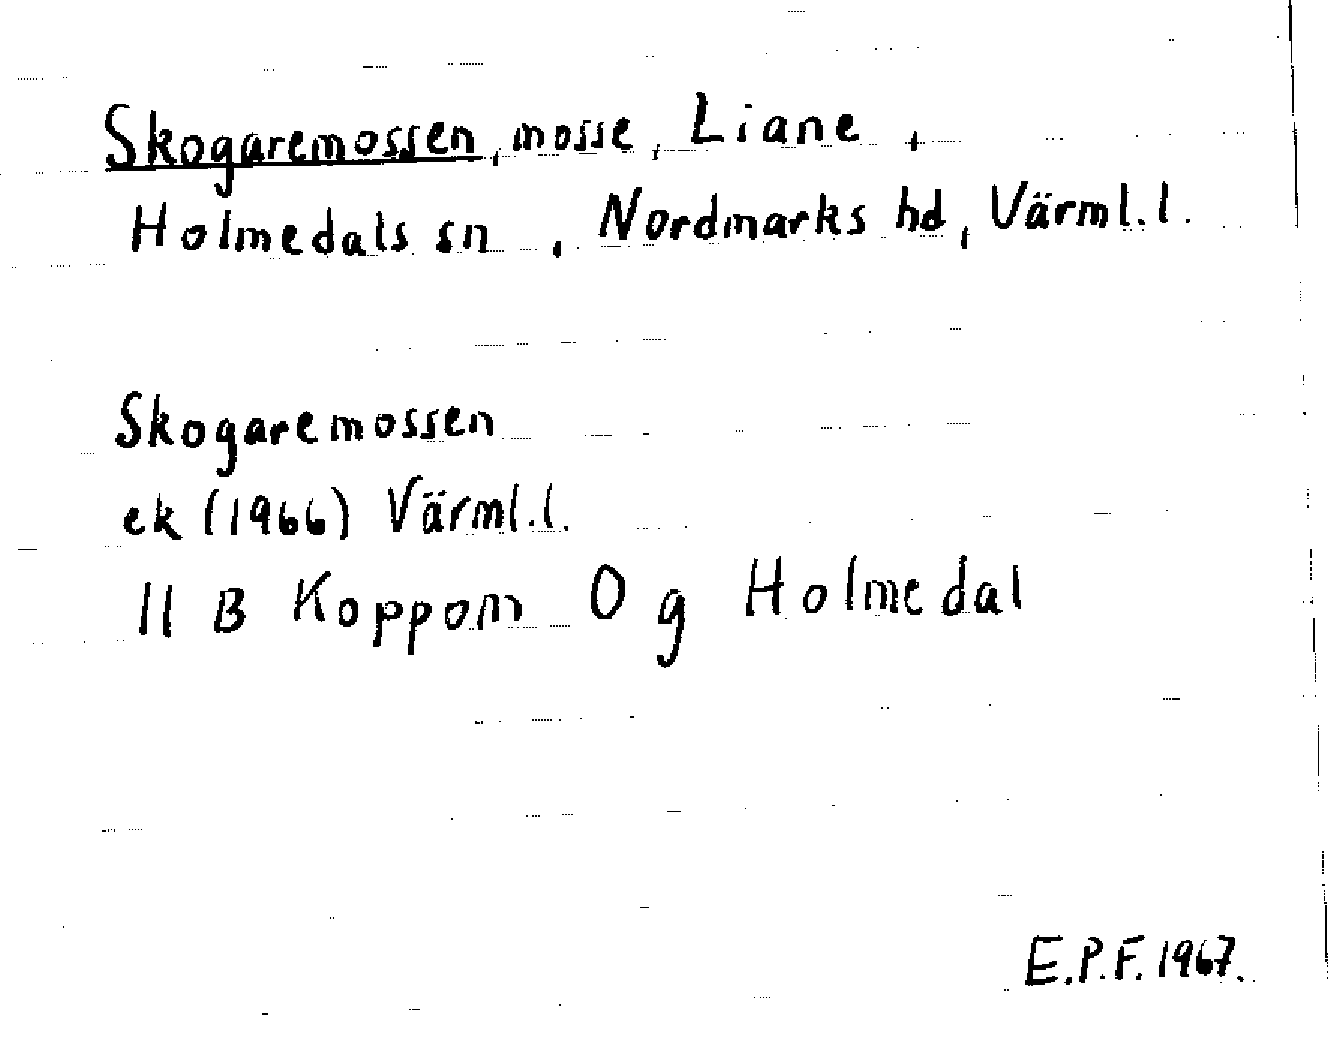 Skogaremossen, mosse, Liane,
Holmedals sn, Nordmarks hd, Värml.l.
Skogaremossen
ek (1966) Värml.l.
11 B Koppom 0 g Holmedal
E.P.F. 1967.